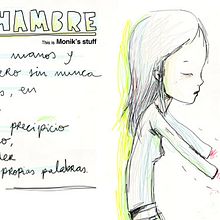 HAMBRE
This is Monik's stuff
manos y
ero sin nunca
s, en
precipicio
o,
der
propias palabras.